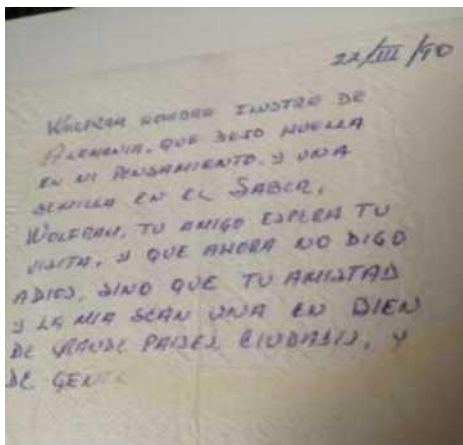 22/III/90
WOLFRAN HOMBRE ILUSTRE DE
ALEMANIA, QUE DEJO HUELLA
EN MI PENSAMIENTO, Y UNA
SEMILLA EN EL SABER,
WOLFRAN, TU AMIGO ESPERA TU
VISITA, Y QUE AHORA NO DIGO
ADIOS, SINO QUE TU AMISTAD
Y LA MIA SEAN UNA EN BIEN
DE PAISES CIUDADES, Y
DE GENTE